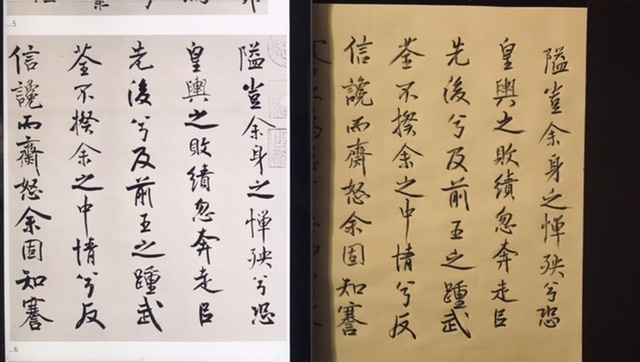 隘豈余身之憚殃兮恐
皇輿之敗績忽奔走㠯
先後兮及前王之踵武
荃不揆余之中情兮反
信讒而齌怒余固知謇
隘豈余身之憚殃兮恐
皇輿之敗績忽奔走㠯
先後兮及前王之踵武
荃不揆余之中情兮反
信讒而齌怒余固知謇